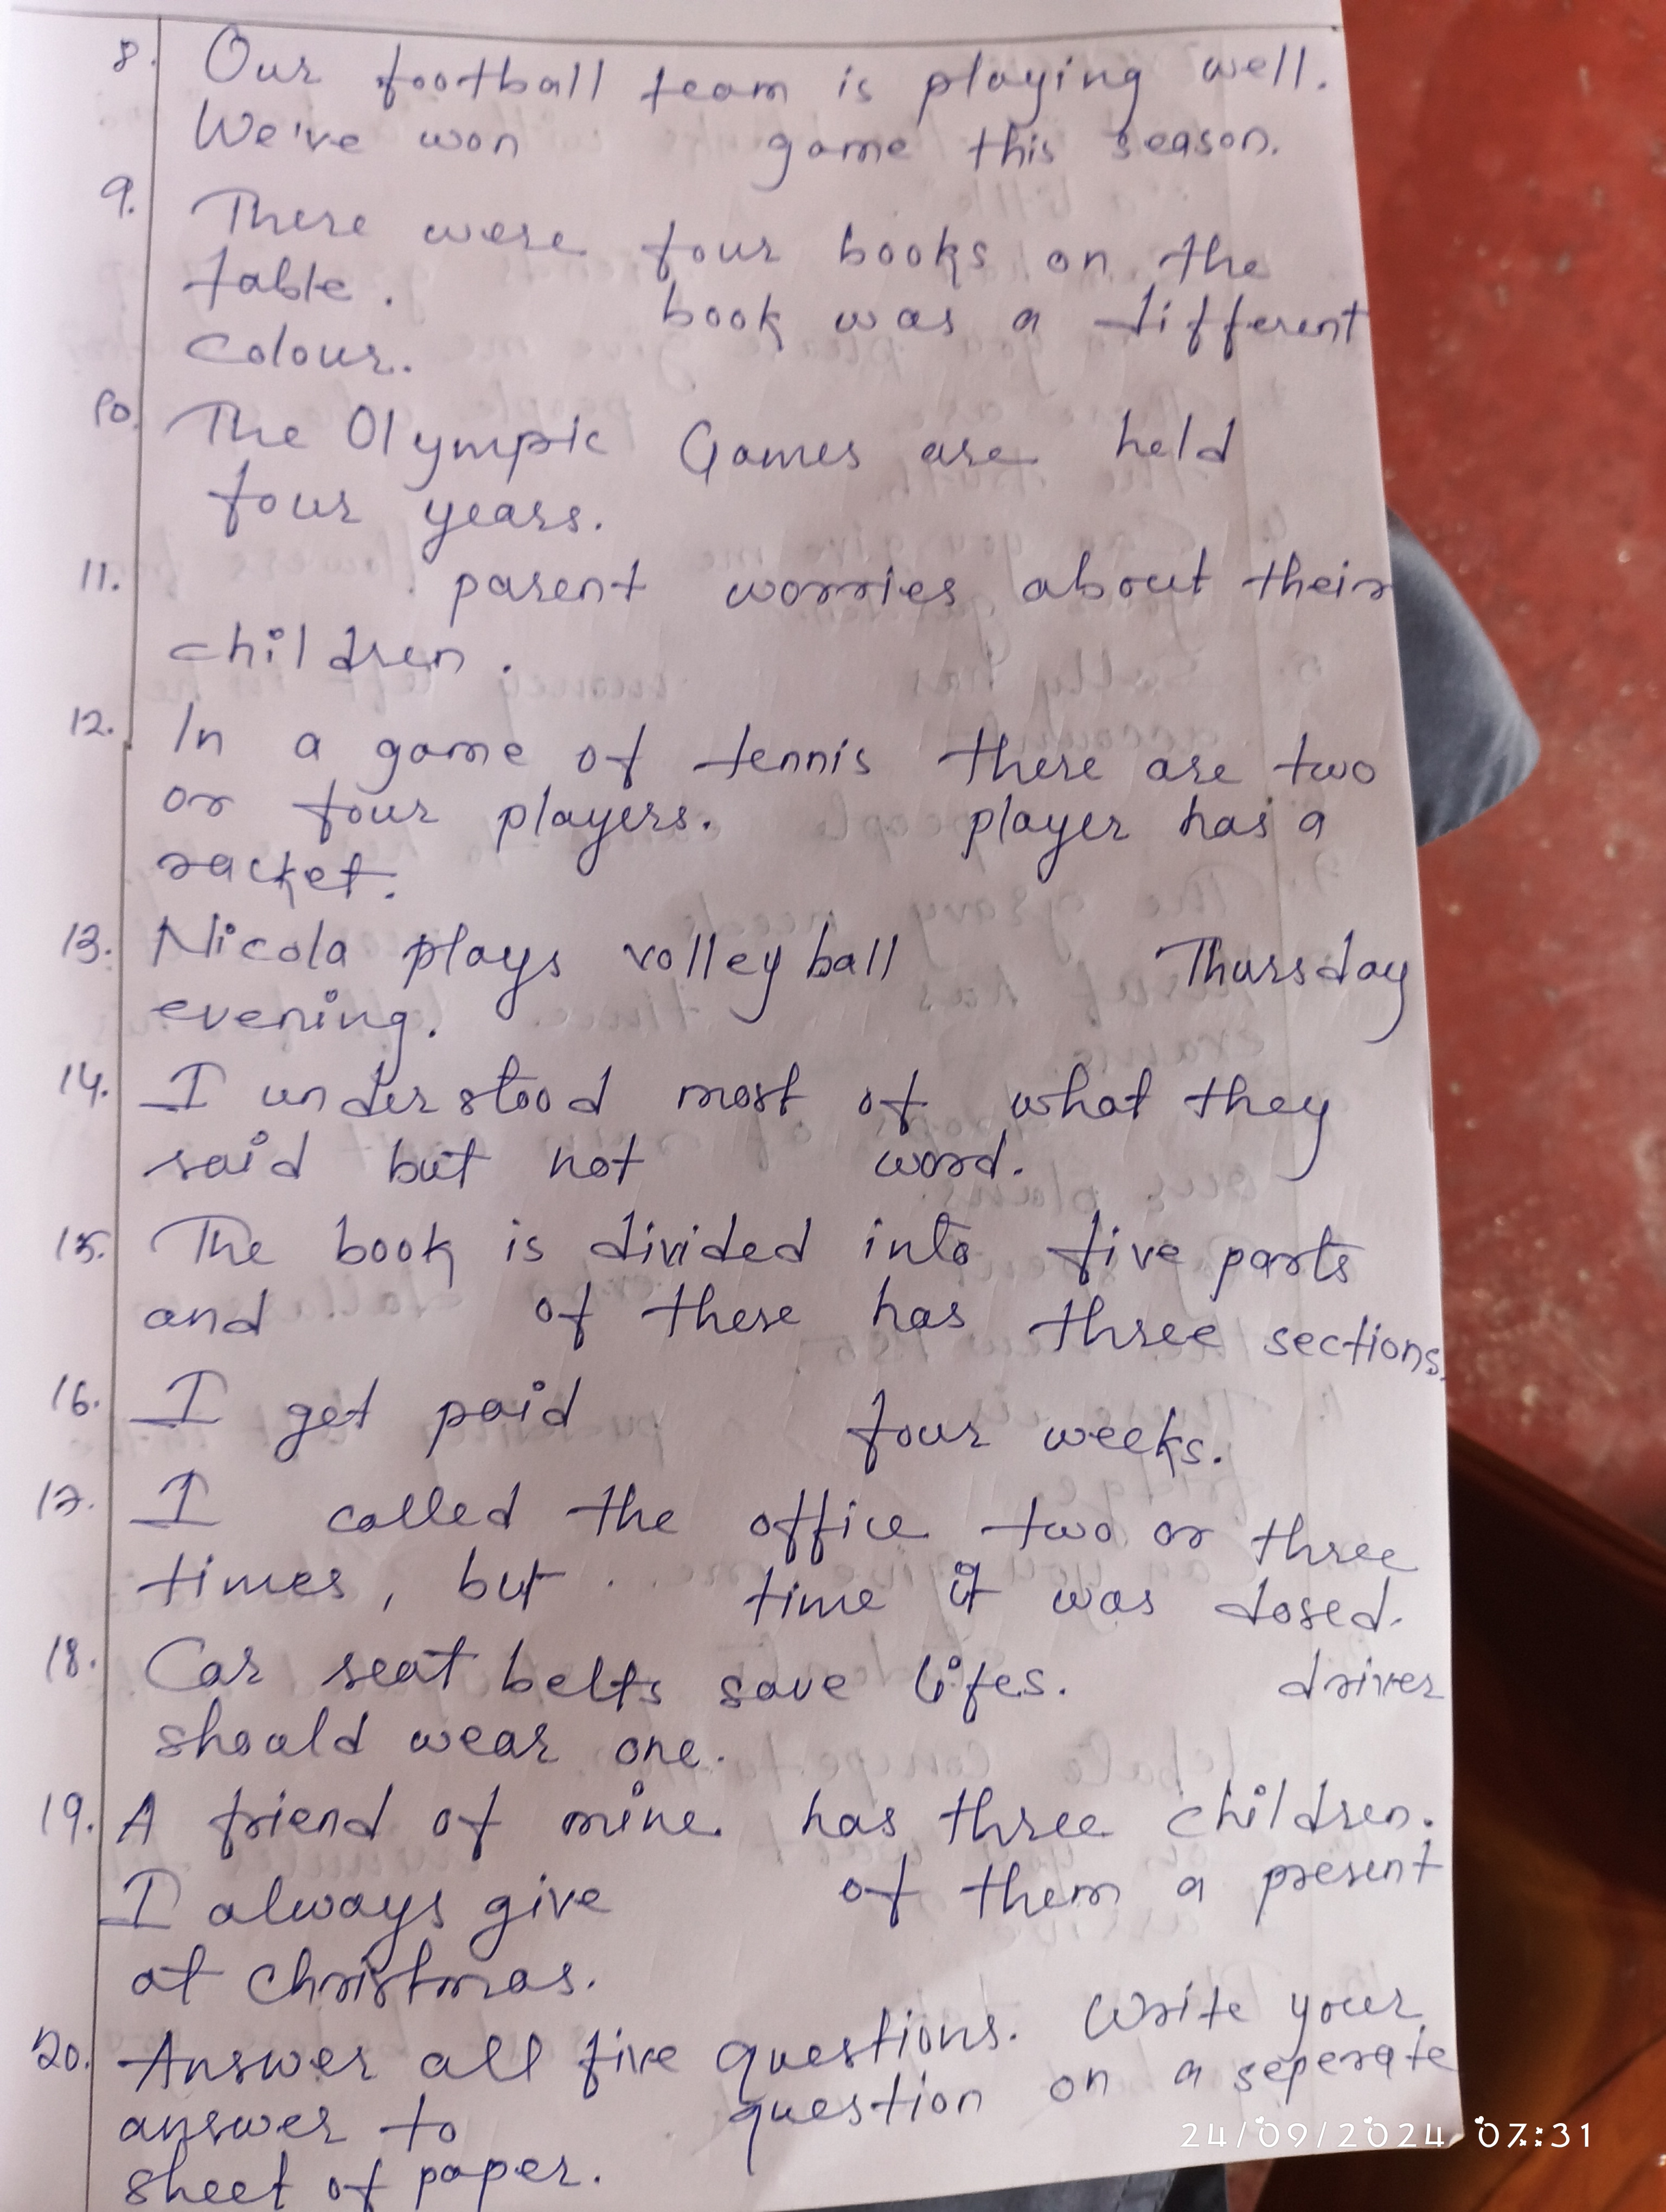 8. Our football team is playing well.
We've won game this season.
9. There were four books on the
table. book was a different
colour.
10. The Olympic Games are held
four years.
11. parent worries about their
children.
12. In a game of tennis there are two
or four players. player has a
racket.
13. Nicola plays volleyball Thursday
evening.
14. I understood most of what they
said but not word.
15. The book is divided into five parts
and of these has three sections.
16. I get paid four weeks.
17. I called the office two or three
times, but time it was closed.
18. Car seat belts save lifes. driver
should wear one.
19. A friend of mine has three children.
I always give of them a present
at christmas.
20. Answer all five questions. Write your
answer to question on a seperate
sheet of paper.
24/09/2024 07:31